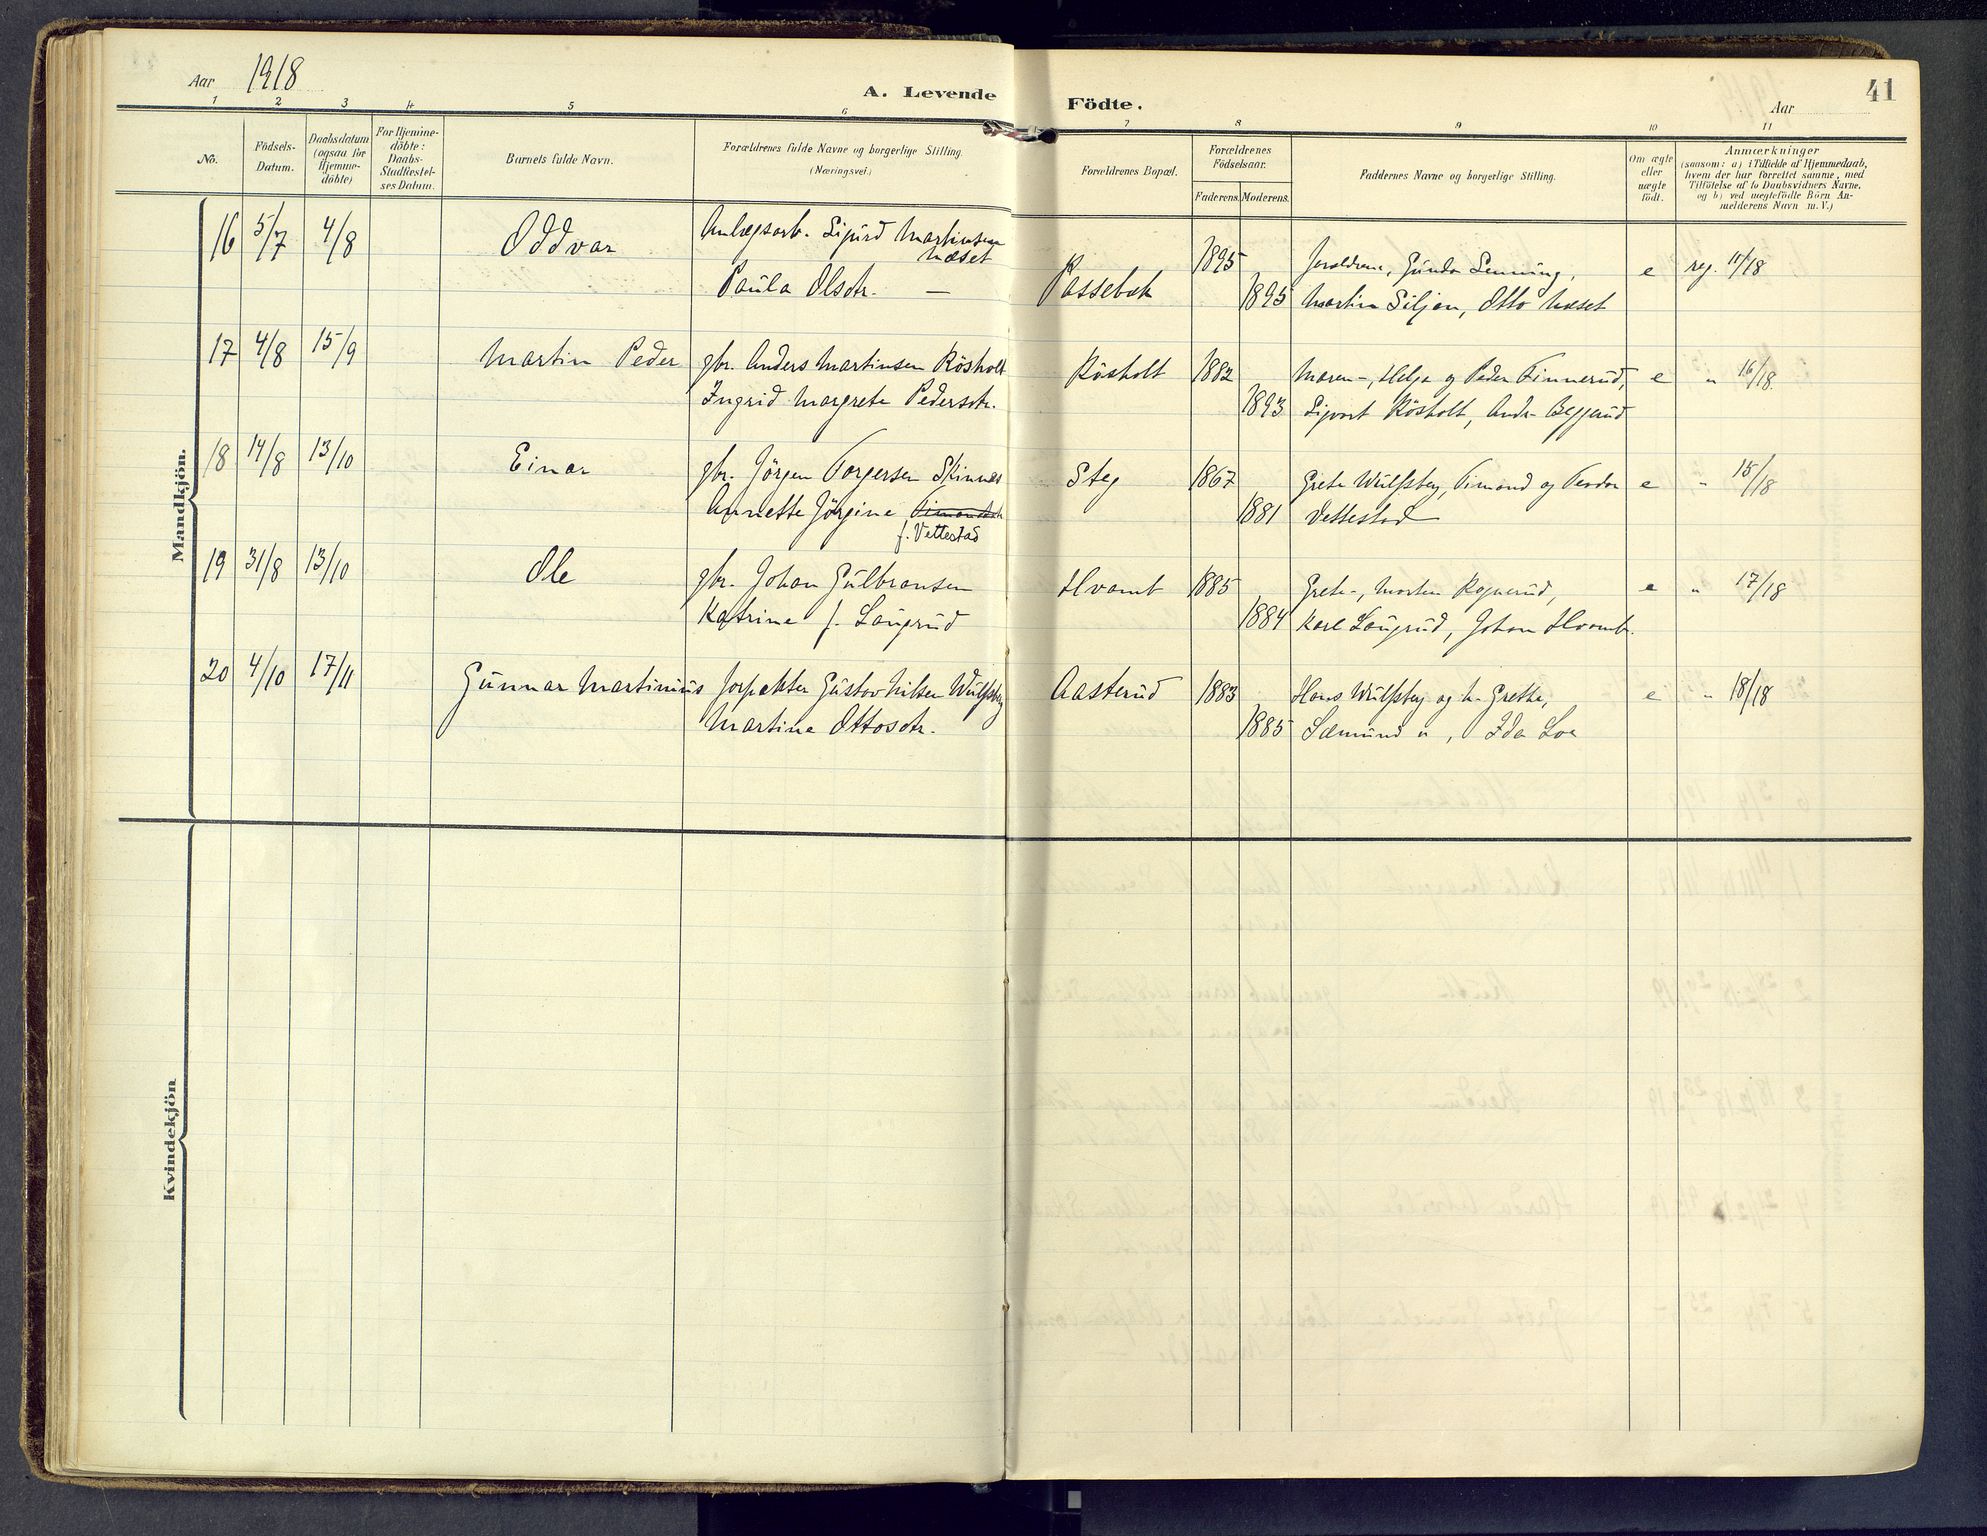 Aar 1918
A. Levende Födte.
Aar
41
1 2 3 4 5 6 7 8 9 10 11
No.
Födsels-
Datum.
Daabsdatum
(ogsaa for
Hjemme-
döbte)
For Hjemme-
döbte:
Daabs-
Stadfæstel-
ses Datum.
Barnets fulde Navn.
Forældrenes fulde Navne og borgerlige Stilling.
(Næringsvei.)
Forældrenes Bopæl.
Forældrenes
Födselsaar.
Faderens. Moderens.
Faddernes Navne og borgerlige Stilling.
Om ægte
eller
uægte
födt.
Anmærkninger
(saasom: a) i Tilfælde af Hjemmedaab,
hvem der har forrettet samme, med
Tilföielse af to Daabsvidners Navne,
og b) ved uægtefödte Börn An-
melderens Navn m. V.)
Mandkjön.
16 5/7 4/8 Oddvar Anlægsarb. Sigurd Martinsen
Næset
Paula Olsdtr. —
Passebæk 1895 Forældrene, Gunda, e reg. 11/18
1895 Martin Siljan, Otto Næset
17 4/8 15/9 Martin Peder gbr. Anders Martinsen Rösholt
Ingrid Margrete Pedersdtr.
Rösholt 1882 Maren-, Helga og Peder Finnerud, e " 16/18
1893 Sigvart Rösholt, Andr. Beggerud
18 14/8 13/10 Einar gbr. Jörgen Torgersen Skinnes
Annette Jörgine Timandsdtr
f. Vettestad
Steg 1867 Grete Wulfsberg, Timand og Teodor e " 15/18
1881 Vettestad
19 31/8 13/10 Ole gbr. Johan Gulbransen
Katrine f. Laugerud
Hvamb 1885 Grete-, Morten Rognerud, e " 17/18
1884 Karl Laugerud, Johan Hvamb.
20 4/10 17/11 Gunnar Martinius forpakter Gustav Nilsen Wulfsberg
Martine Ottosdtr.
Aasterud 1883 Hans Wulfsberg og h. Grethe, e " 18/18
1885 Sæmund ", Ida Loe
Kvindekjön